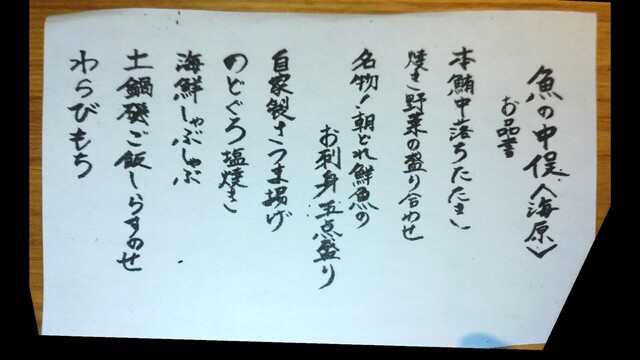 魚の中俣〈海原〉
お品書
本鮪中落ちたたき
焼き野菜の盛り合わせ
名物！朝どれ鮮魚の
お刺身五点盛り
自家製さつま揚げ
のどぐろ塩焼き
海鮮しゃぶしゃぶ
土鍋磯ご飯しらすのせ
わらびもち